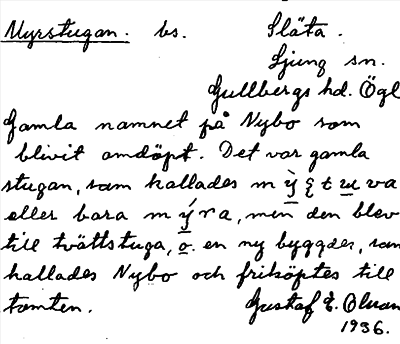 Myrstugan. bs. Släta.
Ljung sn.
Gullbergs hd. Ögl
Gamla namnet på Nybo som
blivit omdöpt. Det var gamla
stugan, som kallades
eller bara men den blev
till tvättstuga, o. en ny byggdes, som
kallades Nybo och friköptes till
tomten. Gustaf E. Olson
1936.